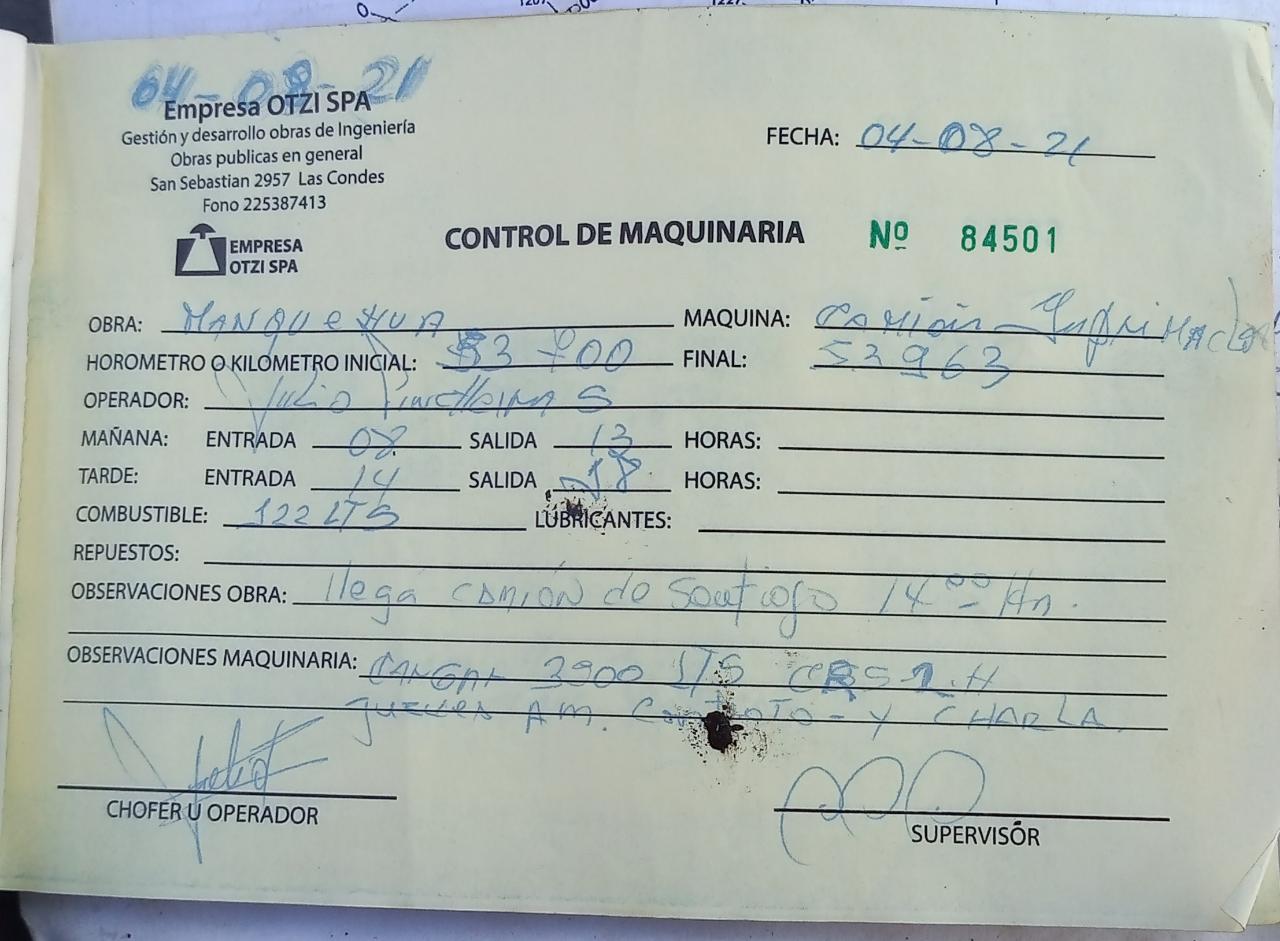 04-08-21
Empresa OTZI SPA
Gestión y desarrollo obras de Ingeniería
Obras publicas en general
San Sebastian 2957 Las Condes
Fono 225387413
FECHA: 04-08-21
EMPRESA
OTZI SPA
CONTROL DE MAQUINARIA Nº 84501
OBRA: MANQUEHUA MAQUINA: CAMION
HOROMETRO O KILOMETRO INICIAL: 53 700 FINAL: 53963
OPERADOR: Julio S
MAÑANA: ENTRADA 08 SALIDA 13 HORAS:
TARDE: ENTRADA 14 SALIDA 18 HORAS:
COMBUSTIBLE: 122 LTS LUBRICANTES:
REPUESTOS:
OBSERVACIONES OBRA: llega camión de Santiago 14 00 Hr.
OBSERVACIONES MAQUINARIA: CARGAR 3900 LTS
JUEVES AM. Y CHARLA
CHOFER U OPERADOR
SUPERVISOR